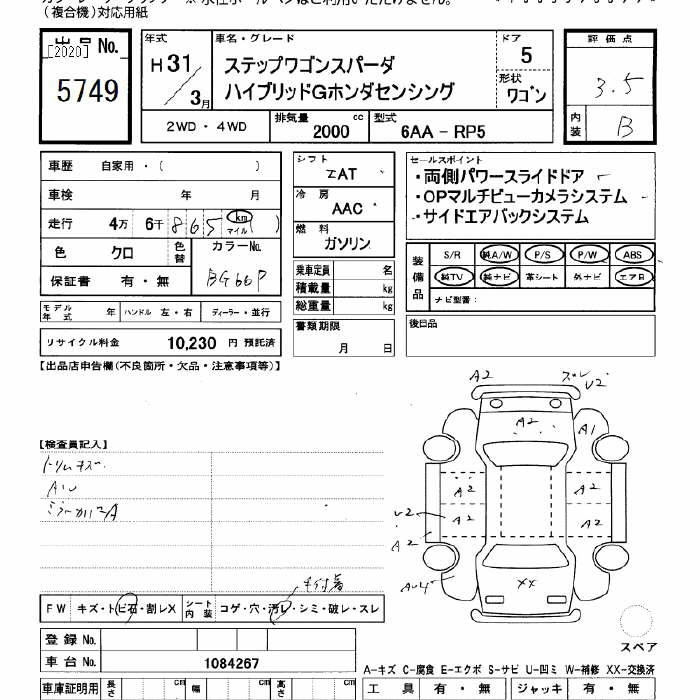 （複合機）対応用紙
出品No.
[2020]
5749
年式
H31/3月
車名・グレード
ステップワゴンスパーダ
ハイブリッドGホンダセンシング
ドア
5
形状
ワゴン
2WD・4WD
排気量
2000 cc
型式
6AA－RP5
評価点
3.5
内装
B
車歴 自家用・( )
車検 年 月
走行 4万 6千 865 km マイル
色 クロ
色替
カラーNo.
BG66P
保証書 有・無
モデル年式 年 ハンドル 左・右 ディーラー・並行
リサイクル料金 10,230 円 預託済
シフト
AT
冷房
AAC
燃料
ガソリン
乗車定員 名
積載量 kg
総重量 kg
書類期限
月 日
セールスポイント
・両側パワースライドドア
・OPマルチビューカメラシステム
・サイドエアバックシステム
装備品
S/R 純A/W P/S P/W ABS
純TV 純ナビ 革シート 外ナビ エアB
ナビ型番：
後日品
【出品店申告欄(不良箇所・欠品・注意事項等)】
【検査員記入】
トリムキズ
A2
ズレ
V2
A2
A1
A2
A2
V2
A2
A2
A2
XX
FW キズ・トビ石・割レX
シート内装 コゲ・穴・汚レ・シミ・破レ・スレ
登録No.
車台No. 1084267
スペア
A－キズ C－腐食 E－エクボ S－サビ U－凹ミ W－補修 XX－交換済
車庫証明用 長さ cm 幅 cm 高さ cm
工具 有・無 ジャッキ 有・無